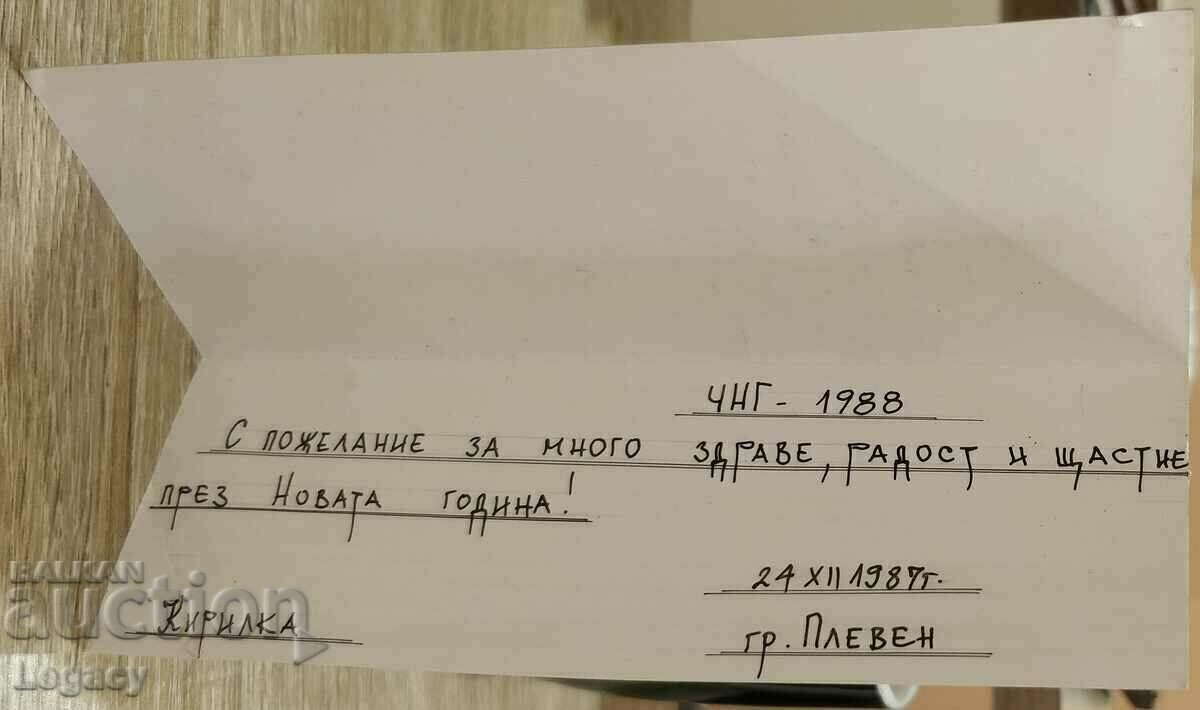 ЧНГ - 1988
С пожелание за много здраве, радост и щастие
през Новата година!
24 XII 1987г.
Кирилка
гр. Плевен
BALKAN
auction
Legacy